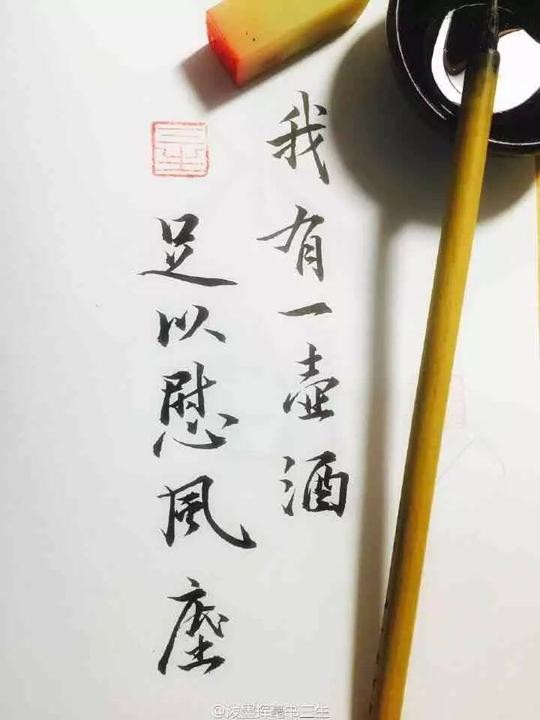 我有一壶酒
足以慰風塵
三生